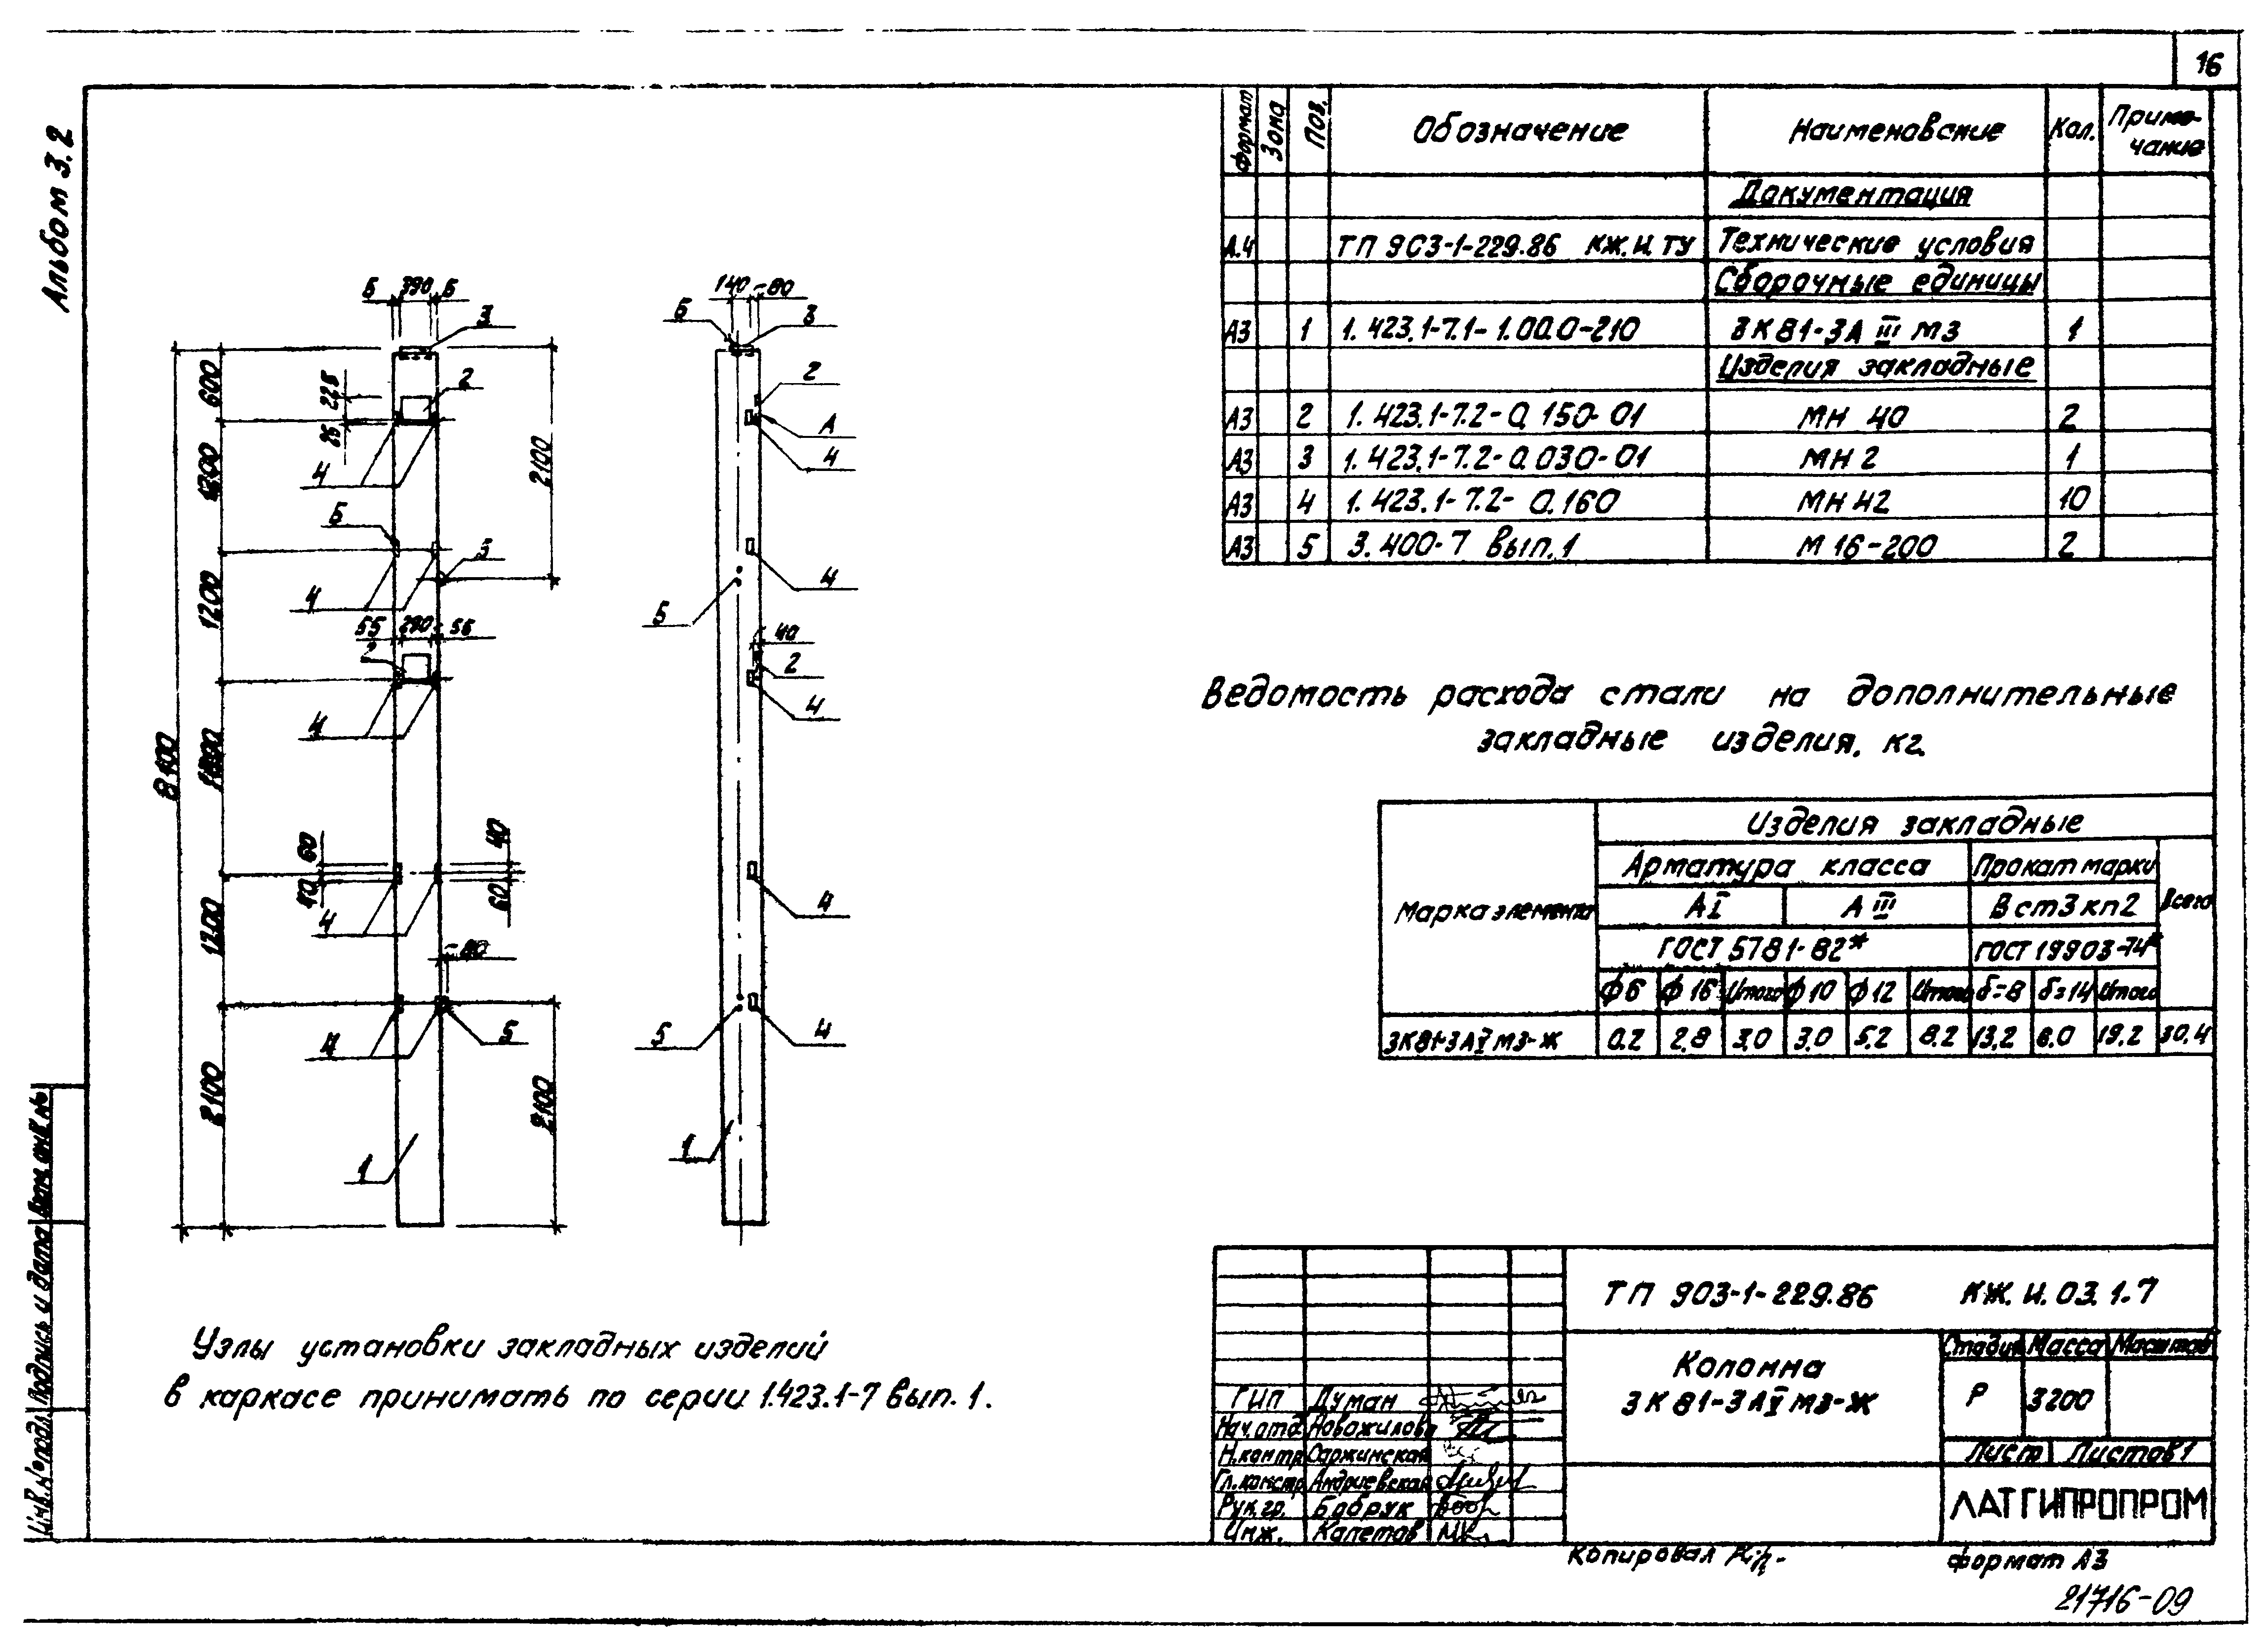 16
Альбом 3.2
Формат Зона Поз. Обозначение Наименование Кол. Примечание
Документация
А.4 ТП 903-1-229.86 КЖ.И.ТУ Технические условия
Сборочные единицы
А3 1 1.423.1-7.1-1.00.0-210 3К81-3А III м3 1
Изделия закладные
А3 2 1.423.1-7.2-0.150-01 МН 40 2
А3 3 1.423.1-7.2-0.030-01 МН 2 1
А3 4 1.423.1-7.2-0.160 МН 42 10
А3 5 3.400-7 Вып.1 М 16-200 2
Б 390 Б
3
2
600
25
4
2100
Б
5
4
1200
55 290
2
4
8100
60
40
40
60
4
1200
80
4
5
2100
2100
1
140 80
Б 3
2
А
4
4
5
40
2
4
4
5
4
1
Ведомость расхода стали на дополнительные
закладные изделия, кг.
Марка элемента
Изделия закладные
Арматура класса Прокат марки
Всего
АI А III Вст3кп2
ГОСТ 5781-82* ГОСТ 19903-74*
ф6 ф16 Итого ф10 ф12 Итого δ=8 δ=14 Итого
3К81-3АVм3-Ж 0.2 2.8 3.0 3.0 5.2 8.2 13.2 6.0 19.2 30.4
Узлы установки закладных изделий
в каркасе принимать по серии 1.423.1-7 вып. 1.
ТП 903-1-229.86 КЖ.И.03.1.7
Колонна
3К81-3АVм3-Ж
Стадия Масса Масштаб
Р 3200
Лист Листов 1
ЛАТГИПРОПРОМ
ГИП Думан
Нач.отд. Новожилова
Н.контр. Саржинская
Гл.констр. Андриевская
Рук.гр. Бобрук
Инж. Капетов
Инв.№подл. Подпись и дата Взам.инв.№
Копировал
формат А3
21716-09